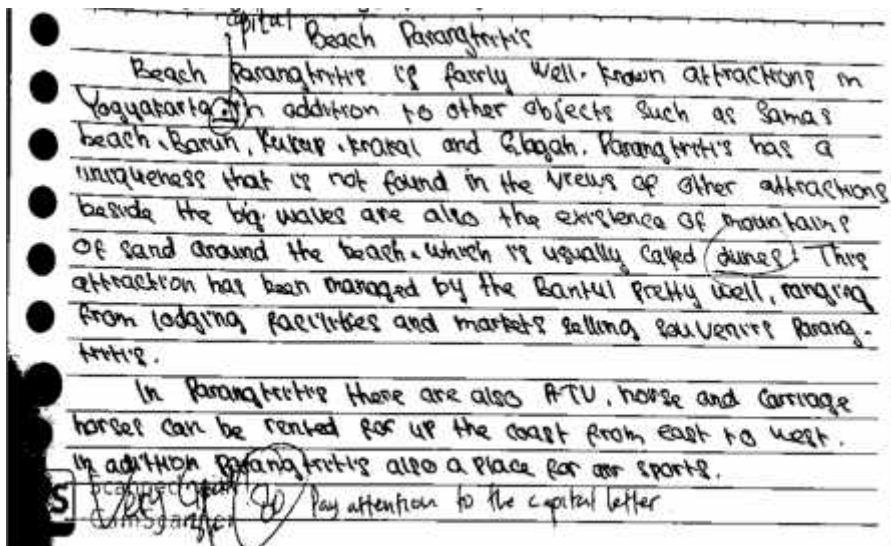 capital
Beach Parangtritis
Beach Parangtritis is fairly well-known attractions in
Yogyakarta. in addition to other objects such as Samas
beach, Baruh, Kukup, krakal and Glagah. Parangtritis has a
uniqueness that is not found in the views of other attractions
beside the big waves are also the existence of mountains
of sand around the beach, which is usually called dunes. This
attraction has been managed by the Bantul pretty well, ranging
from lodging facilities and markets selling souvenirs Parang-
tritis.
In Parangtritis there are also ATV, horse and carriage
horses can be rented for up the coast from east to west.
In adition Parangtritis also a place for air sports.
Very 80 Pay attention to the capital letter
CamScanner